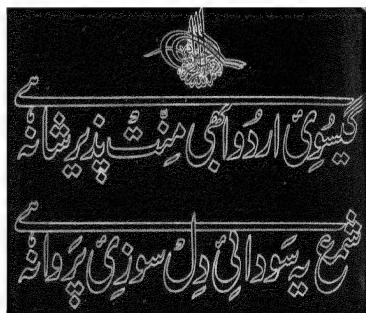 گیسوئ اردو ابھی منت پذیر شانہ ہے
شمع یہ سودائ دل سوزئ پروانہ ہے